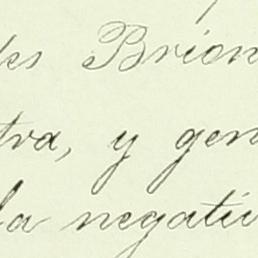 des Brion
tra, y gen
la negativ